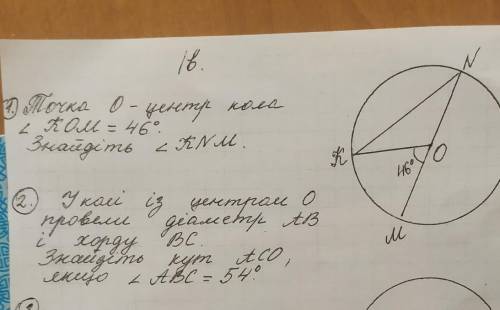 Ів.
1. Точка О - центр кола
∠ КОМ = 46°.
Знайдіть ∠ KNM.
N
K
O
46°
M
2. У колі із центром О
провели діаметр АВ
і хорду ВС.
Знайдіть кут АСО,
якщо ∠ АВС = 54°.